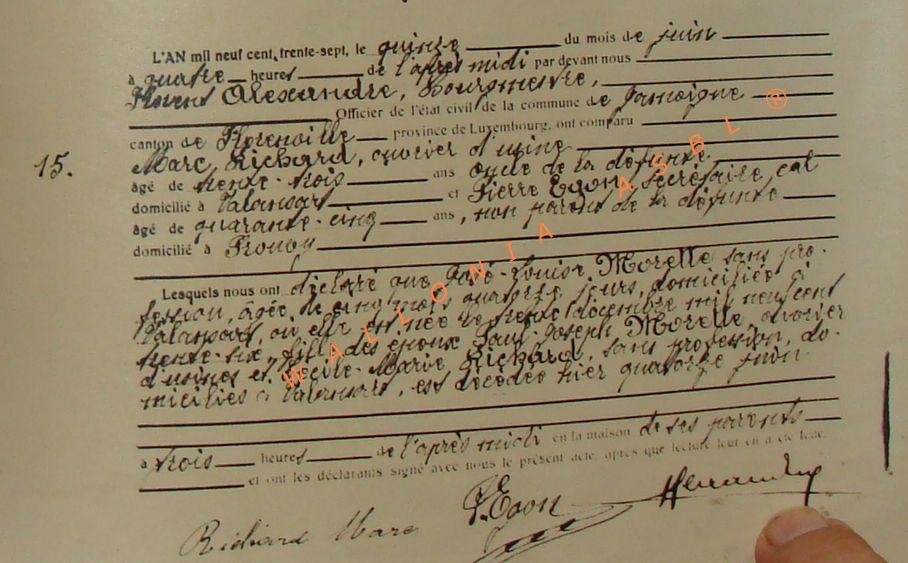 L'AN mil neuf cent trente-sept, le quinze du mois de juin
à quatre heures de l'après midi par devant nous
Florent Alexandre, Bourgmestre,
Officier de l'état civil de la commune de Jamoigne
canton de Florenville province de Luxembourg, ont comparu
15.
Marc Richard, ouvrier d'usine
âgé de trente-trois ans oncle de la défunte
domicilié à Valansart et Pierre Egon, secrétaire cal
âgé de quarante-cinq ans, non parent de la défunte
domicilié à Prouvy
Lesquels nous ont déclaré que José-Louise Morette sans pro-
fession, âgée de cinq mois quatorze jours, domiciliée à
Valansart, où elle est née le trente décembre mil neuf cent
trente-six, fille des époux Paul-Joseph Morette, ouvrier
d'usines et Cécile-Marie Richard, sans profession, do-
miciliés à Valansart, est décédée hier quatorze juin
à trois heures de l'après midi en la maison de ses parents
et ont les déclarants signé avec nous le présent acte, après que lecture leur en a été faite.
Richard Marc
P. Egon
WALLONIA ASBL ®